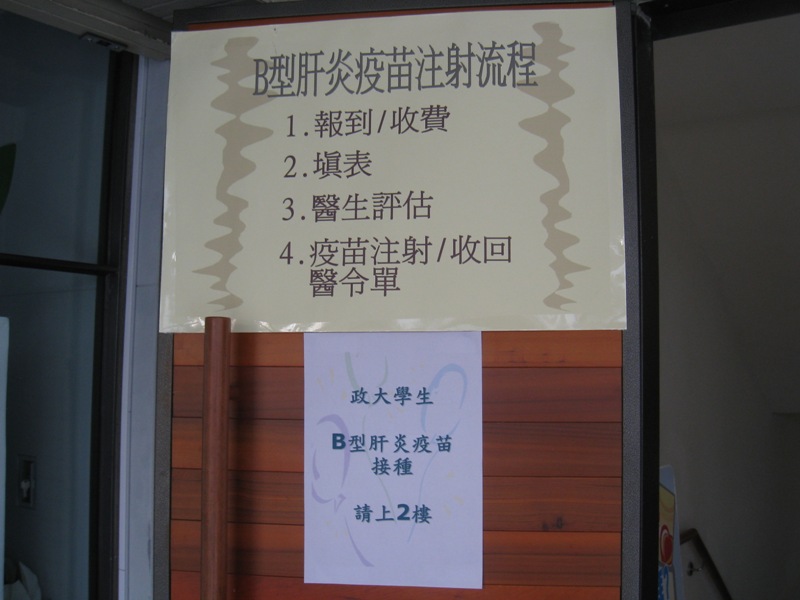 B型肝炎疫苗注射流程
1.報到/收費
2.填表
3.醫生評估
4.疫苗注射/收回
醫令單
政大學生
B型肝炎疫苗
接種
請上2樓